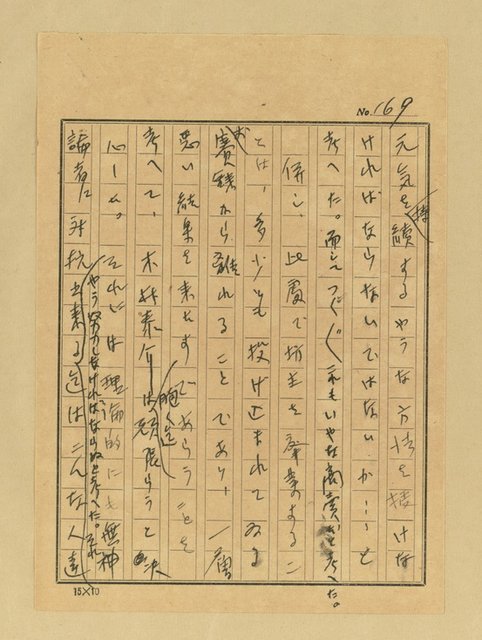 No. 169
元気を持続するやうな方法を接けな
ければならないではないか……と
考へた。而してつくづくこれもいやな商売だと考へた。
併し、此處で坊主を廃業するこ
とは、多少とも投げ込まれてゐる
お賽銭から離れることであり、一層
悪い結果を来たすであらうことを
考へて、木村泰介は飽く迄頑張らうと決
心した。それには理論的にも無神
論者に対抗出来る迄はこんな人達
やう努力しなければならぬと考へた。それ
15×10